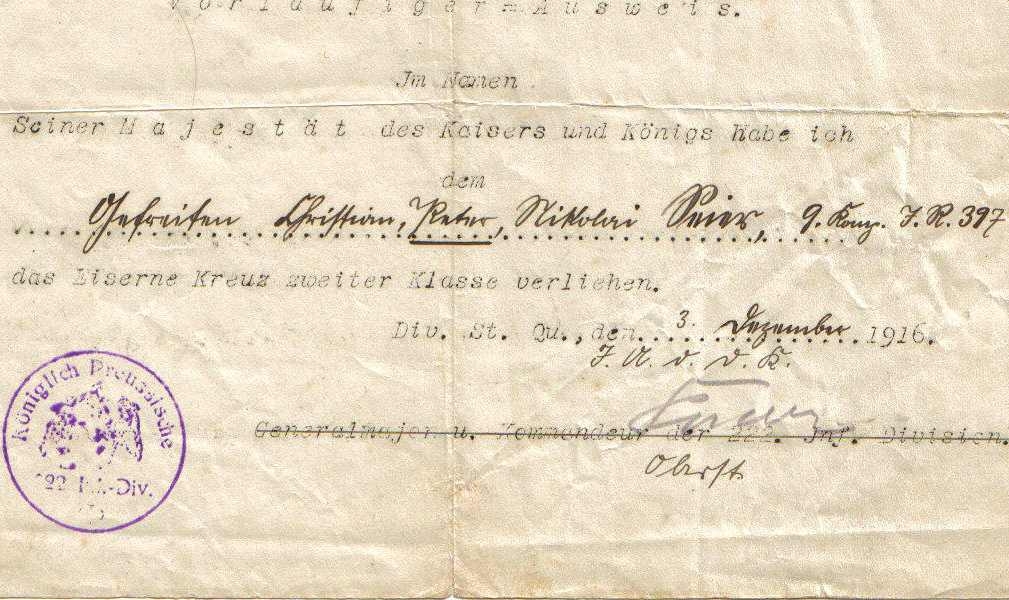 Vorläufiger=Ausweis.
Jm Namen
Seiner Majestät des Kaisers und Königs habe ich
dem
Gefreiten Christian, Peter, Nikolai Seier, 9. Komp. J. R. 397
das Eiserne Kreuz zweiter Klasse verliehen.
Div. St. Qu., den 3. Dezember 1916.
J. A. d. D. K.
Generalmajor u. Kommandeur der 222. Jnf. Division.
Oberst
Königlich Preussische
222 Inf.-Div.